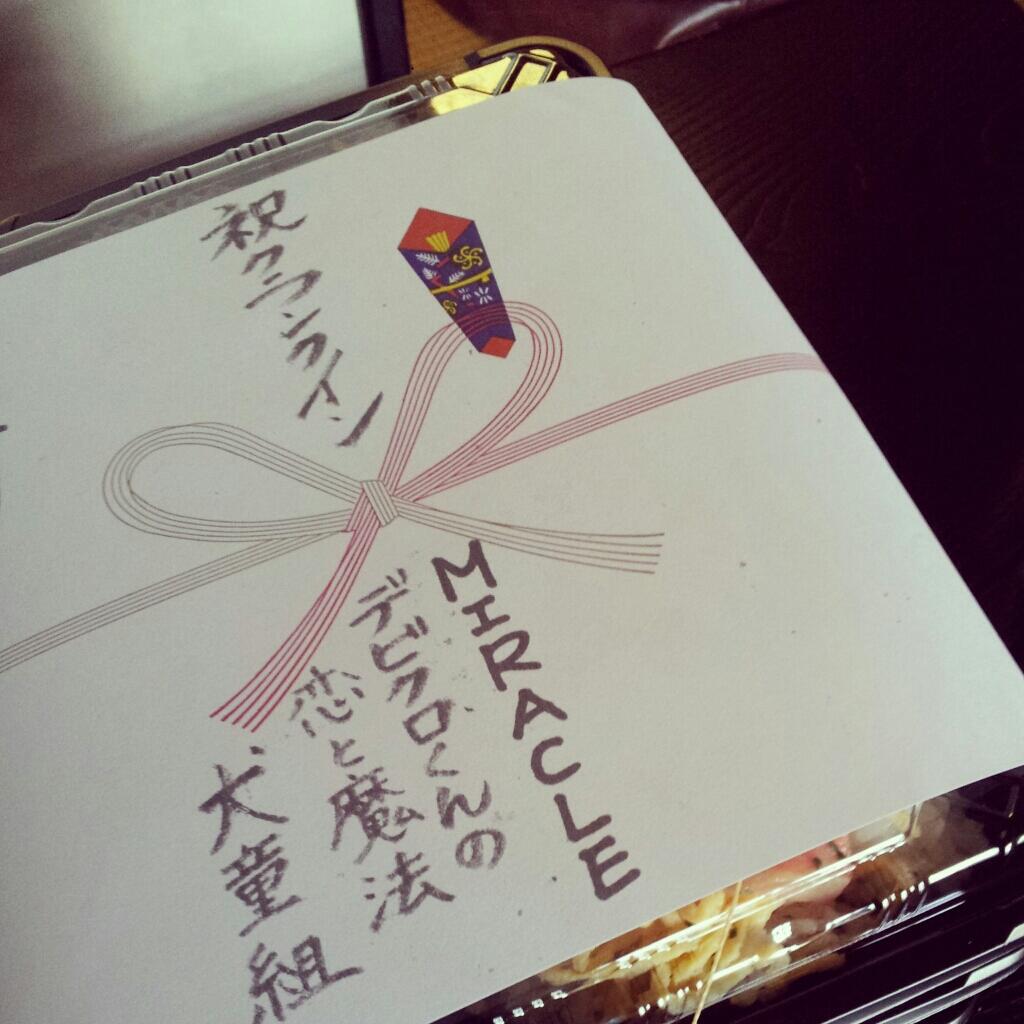 祝クランクイン
MIRACLE
デビクロくんの
恋と魔法
犬童組